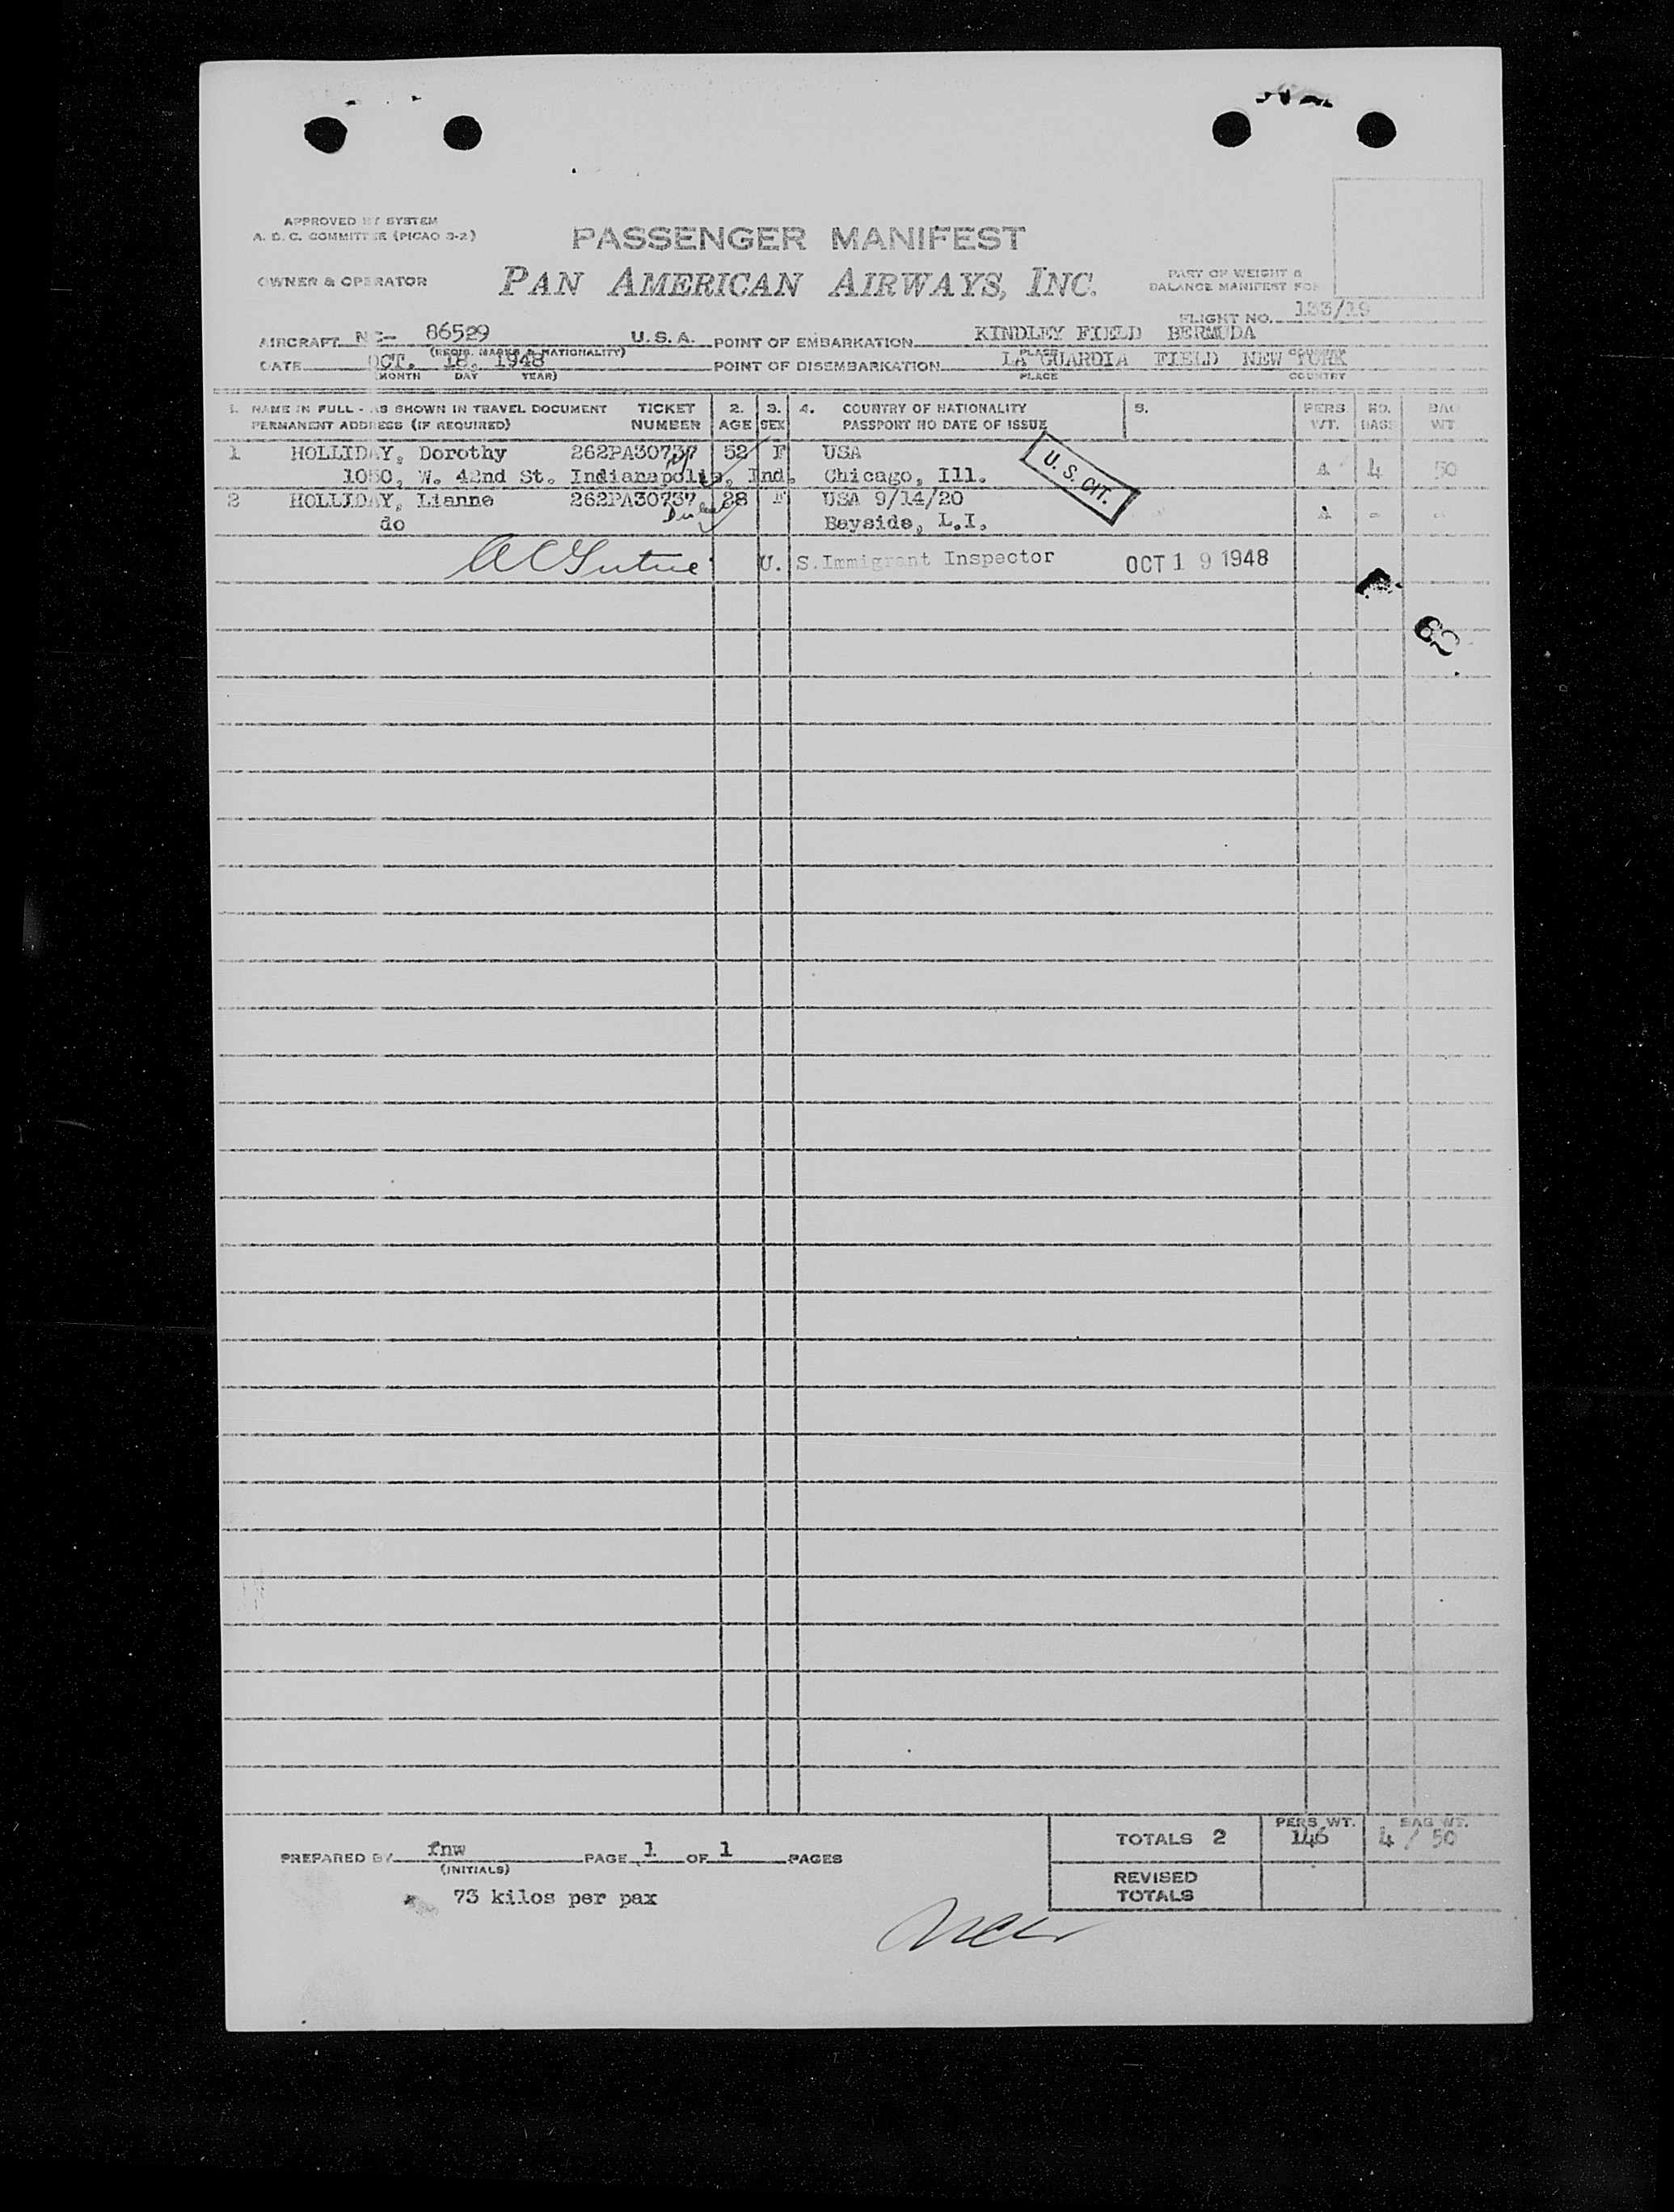 APPROVED BY SYSTEM
A. D. C. COMMITTEE (PICAO 3-2)
PASSENGER MANIFEST
OWNER & OPERATOR
PAN AMERICAN AIRWAYS, INC.
PART OF WEIGHT &
BALANCE MANIFEST FOR
FLIGHT NO. 133/19
AIRCRAFT NC- 86529 U.S.A. POINT OF EMBARKATION KINDLEY FIELD BERMUDA
(REGIS. MARKS & NATIONALITY) PLACE COUNTRY
DATE OCT. 18, 1948 POINT OF DISEMBARKATION LA GUARDIA FIELD NEW YORK
(MONTH DAY YEAR) PLACE COUNTRY
1. NAME IN FULL - AS SHOWN IN TRAVEL DOCUMENT TICKET 2. 3. 4. COUNTRY OF NATIONALITY 5. PERS NO. BAG
PERMANENT ADDRESS (IF REQUIRED) NUMBER AGE SEX PASSPORT NO DATE OF ISSUE WT. BAGS WT
1 HOLLIDAY, Dorothy 262PA30737 52 F USA
1050, W. 42nd St. Indianapolis, Ind. Chicago, Ill. U. S. CIT. 4 50
2 HOLLIDAY, Lianne 262PA30737 28 F USA 9/14/20
do Bayside, L.I. - -
U. S. Immigrant Inspector OCT 19 1948
62
TOTALS 2 PERS WT. 146 BAG WT. 4 / 50
PREPARED BY fnw PAGE 1 OF 1 PAGES
(INITIALS)
REVISED
TOTALS
73 kilos per pax